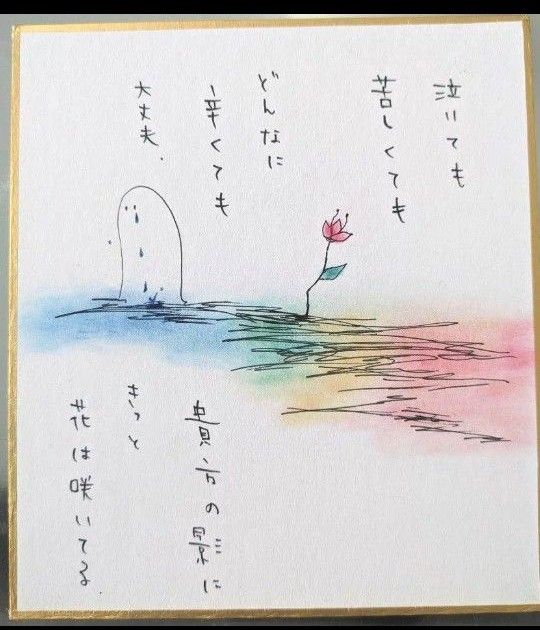 泣いても
苦しくても
どんなに
辛くても
大丈夫.
貴方の影に
きっと
花は咲いてる.